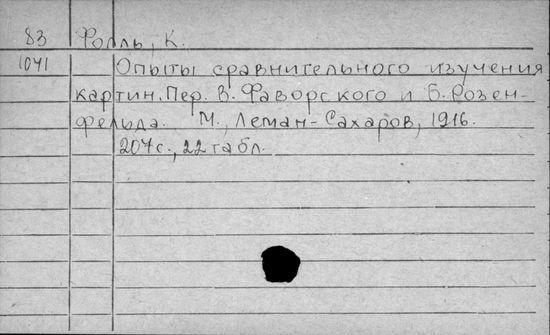 83 Фолль, К.
1041 Опыты сравнительного изучения
картин. Пер. В. Фаворского и Б. Розен-
фельда. М., Леман-Сахаров, 1916.
207 с., 22 табл.